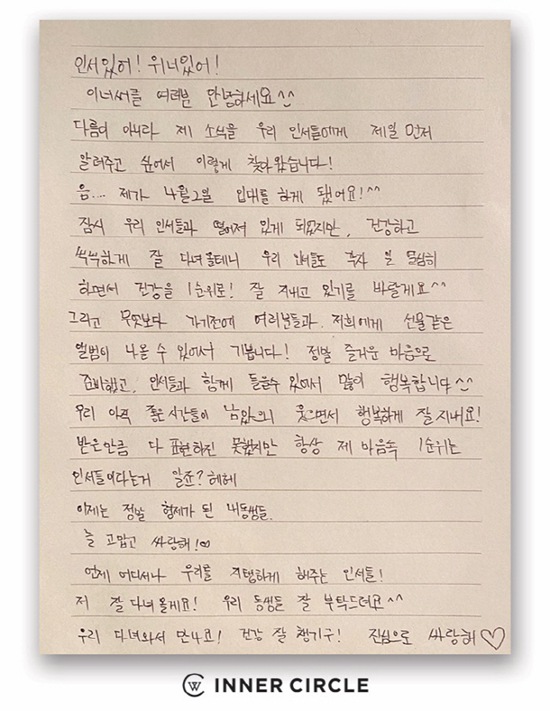 인서있어! 위너있어!
이너써클 여러분 안녕하세요^^
다름이 아니라 제 소식을 우리 인서들에게 제일 먼저
알려주고 싶어서 이렇게 찾아왔습니다!
음... 제가 4월2일 입대를 하게 됐어요!^^
잠시 우리 인서들과 떨어져 있게 되었지만, 건강하고
씩씩하게 잘 다녀올테니 우리 인서들도 각자 일 열심히
하면서 건강을 1순위로! 잘 지내고 있기를 바랄게요^^
그리고 무엇보다 가기전에 여러분들과 저희에게 선물같은
앨범이 나올 수 있어서 기쁩니다! 정말 즐거운 마음으로
준비했고, 인서들과 함께 들을수 있어서 많이 행복합니다^^
우리 아직 좋은 시간들이 남았으니 웃으면서 행복하게 잘 지내요!
받은만큼 다 표현하진 못했지만 항상 제 마음속 1순위는
인서들이라는거 알죠? 헤헤
이제는 정말 형제가 된 내동생들.
늘 고맙고 싸랑해!♡
언제 어디서나 우리를 지탱하게 해주는 인서들!
저 잘 다녀올게요! 우리 동생들 잘 부탁드려요^^
우리 다녀와서 만나요! 건강 잘 챙기구! 진심으로 싸랑해♡
INNER CIRCLE